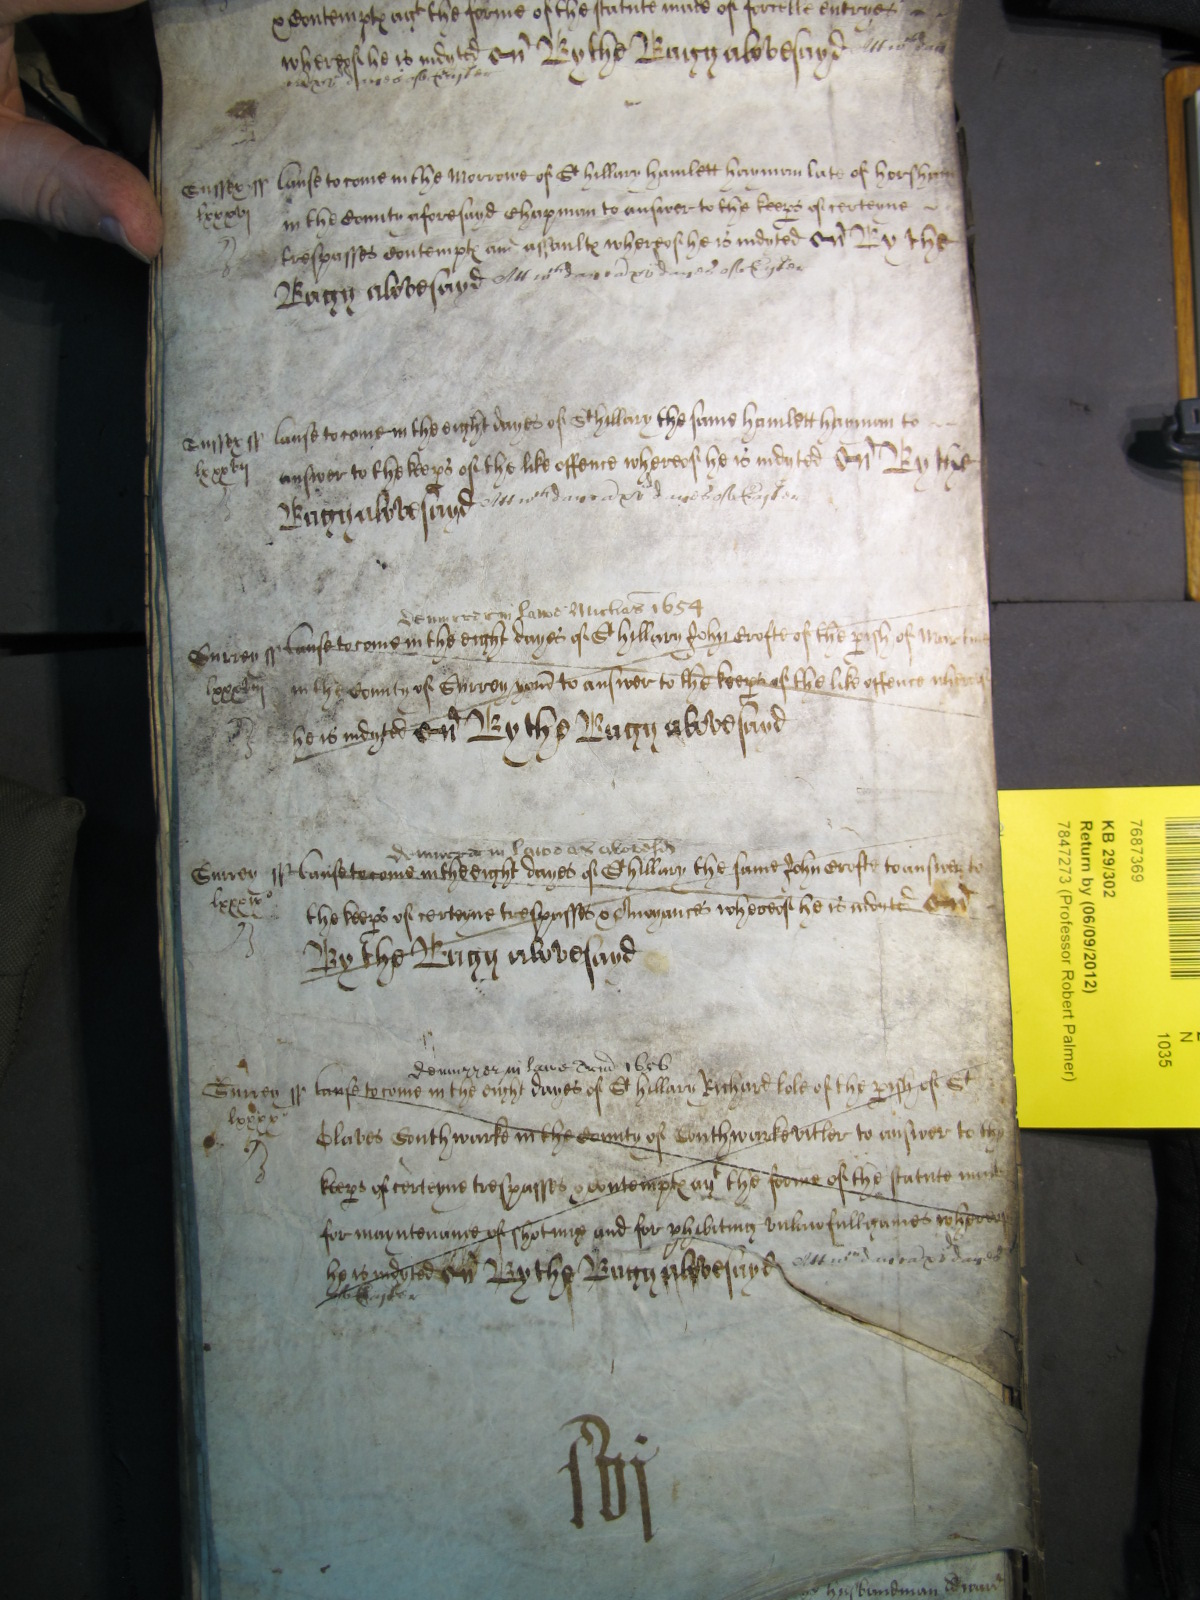 & Contempts agt the forme of the statute made of forcible entryes
whereof he is indyted By the Bagg abovesayd
Sussex ss Cause to come in the Morrowe of St Hillary Hamlett Hayman late of Horsham
lxxxvj in the County aforesayd Chapman to answer to the keeps of certeyne
trespasses Contempts and assaults whereof he is indyted By the
Bagg abovesayd
Sussex ss Cause to come in the eight dayes of St Hillary the same Hamlett Hayman to
lxxxvij answer to the keeps of the like offence whereof he is indyted By the
Bagg abovesayd
demurrer in Lawe Michas 1654
Surrey ss Cause to come in the eight dayes of St Hillary John Crofte of the pish of
lxxxviij in the County of Surrey yom to answer to the keeps of the like offence whereof
he is indyted By the Bagg abovesayd
demurrer in Lawe as abovesd
Surrey ss Cause to come in the eight dayes of St Hillary the same John Crofte to answer to
the keeps of certeyne trespasses & Anoyances whereof he is indyted
By the Bagg abovesayd
demurrer in Lawe 1656
Surrey ss Cause to come in the eight dayes of St Hillary Richard Cole of the pish of St
lxxxx Olaves Southwarke in the County of Southwarke vitler to answer to the
keeps of certeyne trespasses & contempts agt the forme of the statute made
for mayntenance of shoting and for phibiting unlawfull games whereof
he is indyted By the Bagg abovesayd
husbandman
7687369
KB 29/302
Return by (06/09/2012)
7847273 (Professor Robert Palmer)
N
1035